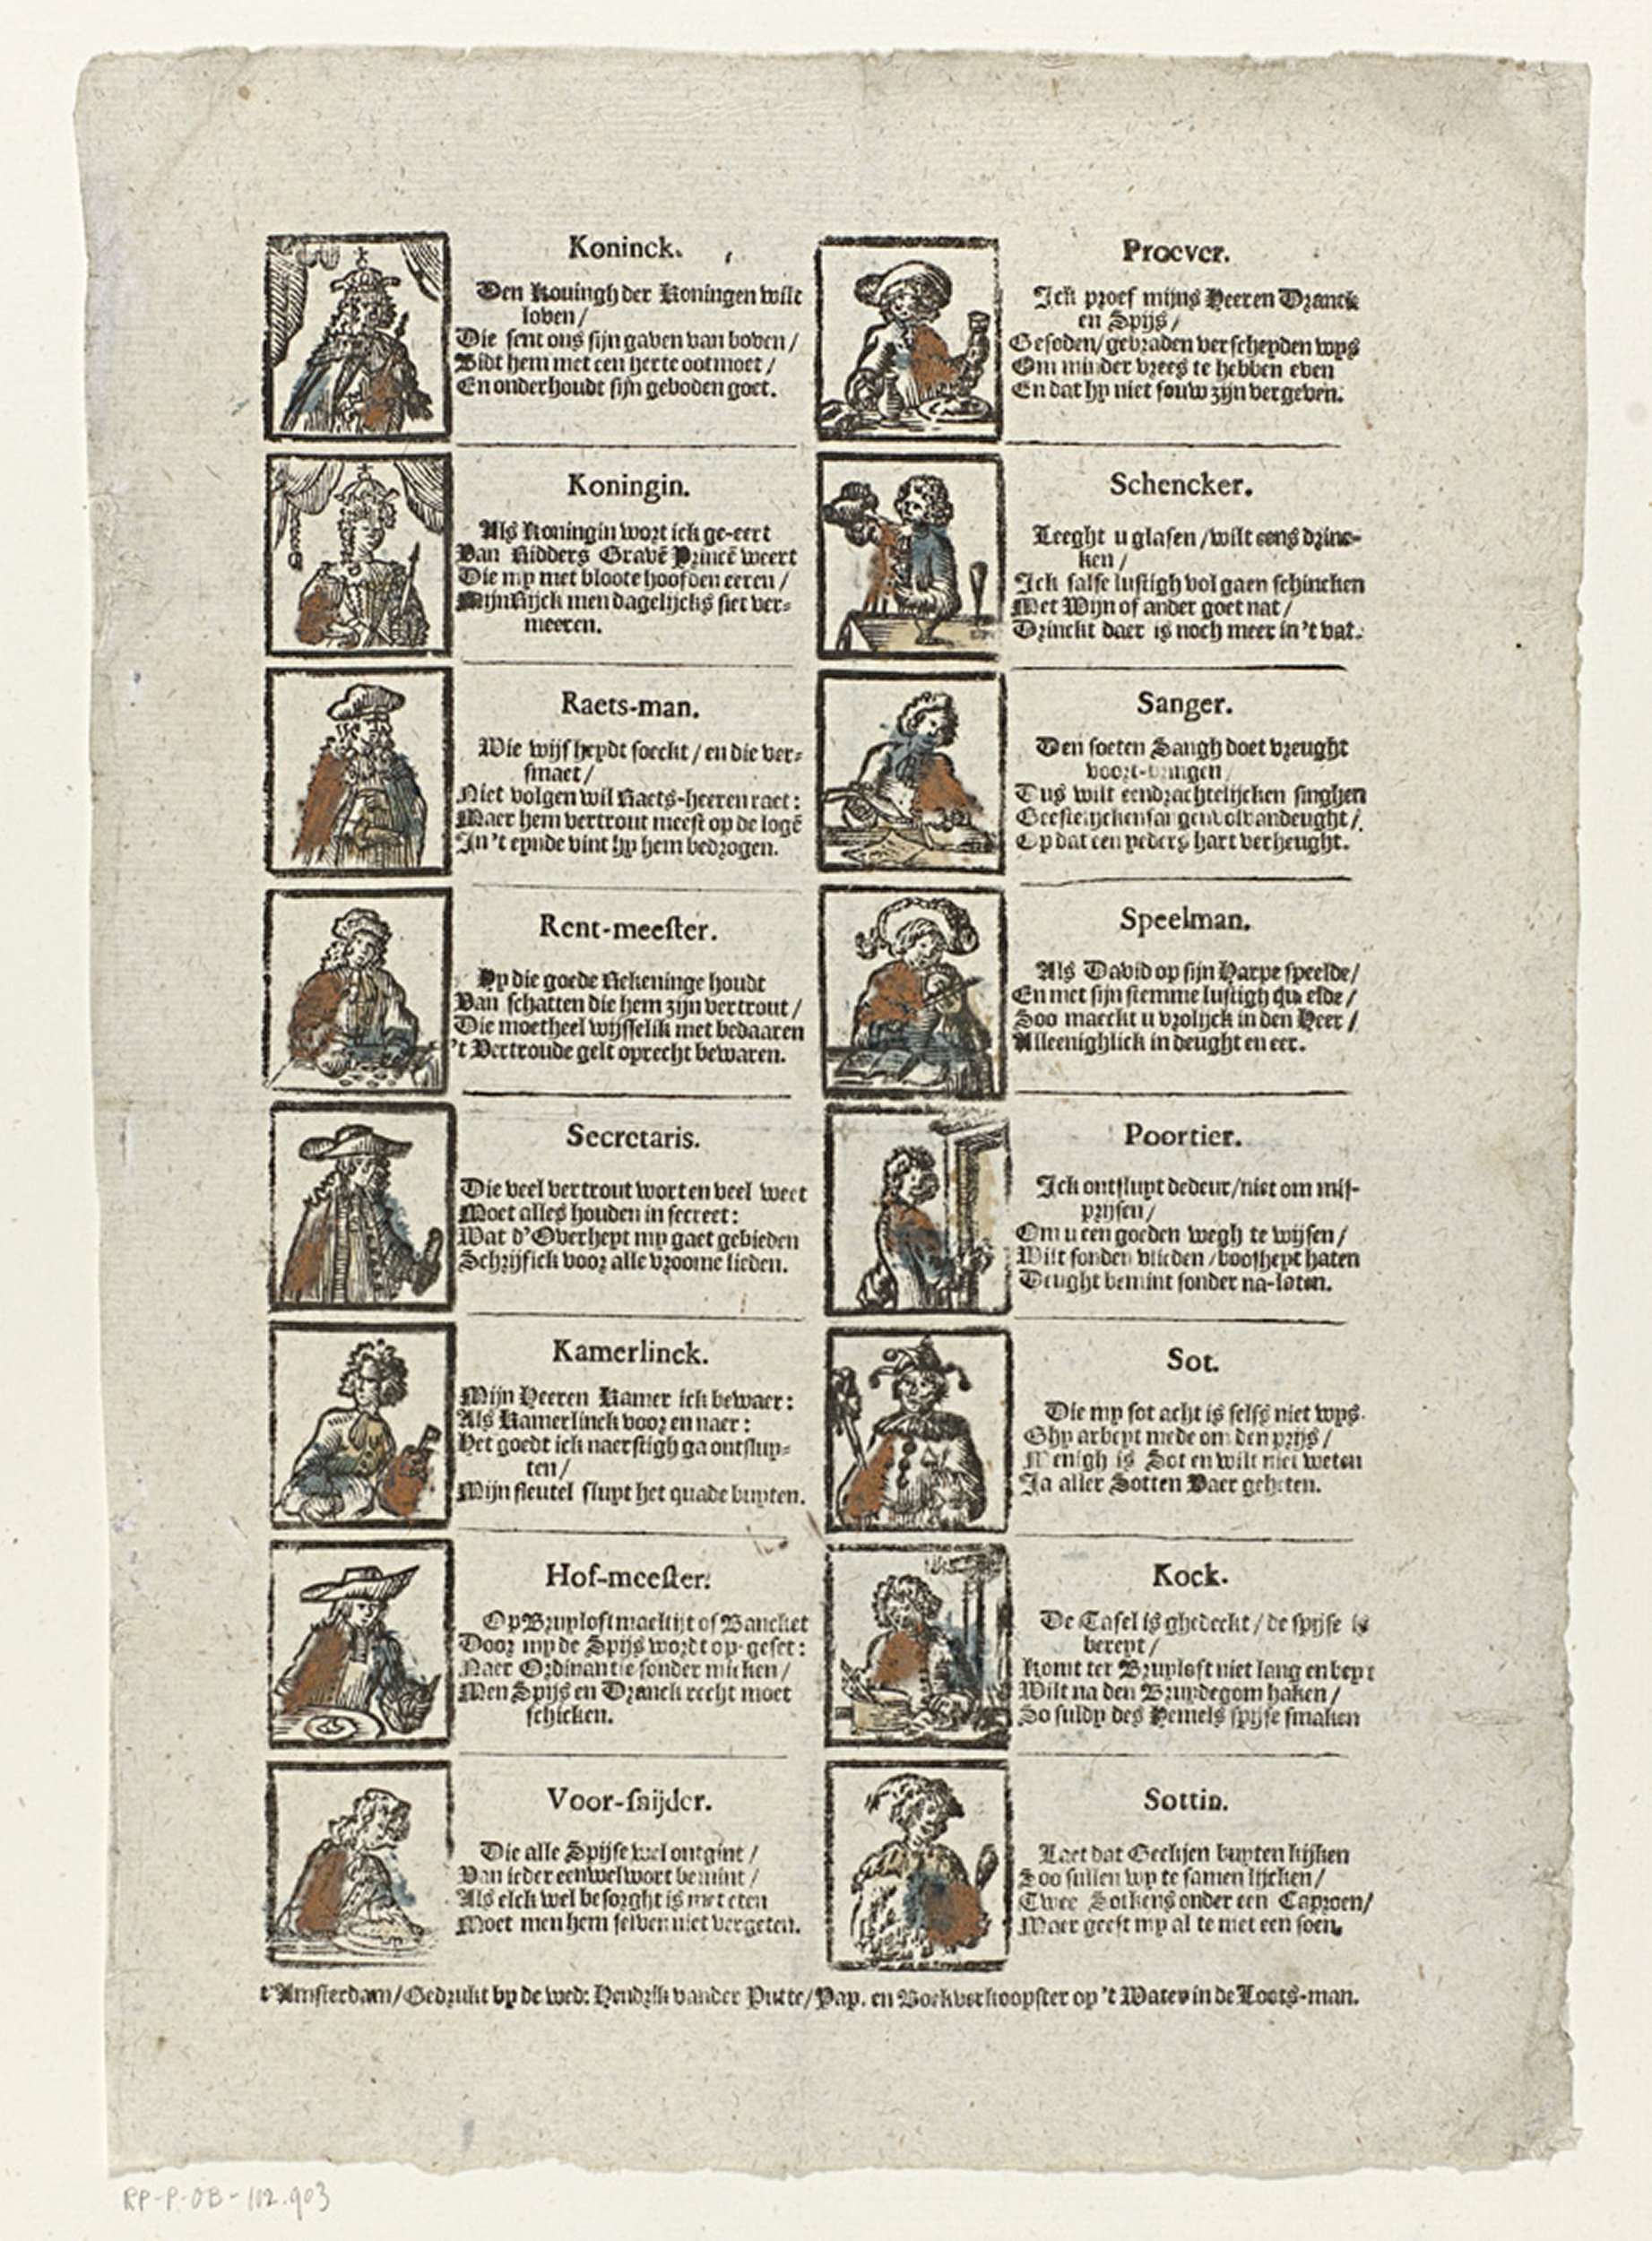 Koninck.
Den Kouingh der Koningen wilt
loven /
Die sent ons sijn gaven van boven /
Bidt hem met een herte ootmoet /
En onderhoudt sijn geboden goet.
Koningin.
Als Koningin wort ick ge-eert
Van Ridders Gravē Princē weert
Die my met bloote hoofden eeren /
Mijn Rijck men dagelijcks siet ver-
meeren.
Raets-man.
Wie wijsheydt soeckt / en die ver-
smaet /
Niet volgen wil Raets-heeren raet:
Maer hem vertrout meest op de logē
In 't eynde vint hy hem bedrogen.
Rent-meester.
Hy die goede Rekeninge houdt
Van schatten die hem zijn vertrout /
Die moet heel wijsselik met bedaaren
't Vertroude gelt oprecht bewaren.
Secretaris.
Die veel vertrout wort en veel weet
Moet alles houden in secreet:
Wat d'Overheyt my gaet gebieden
Schrijf ick voor alle vroome lieden.
Kamerlinck.
Mijn Heeren Kamer ick bewaer:
Als Kamerlinck voor en naer:
Het goedt ick naerstigh ga ontsluy-
ten /
Mijn sleutel sluyt het quade buyten.
Hof-meester.
Op Bruyloft maeltijt of Bancket
Door my de Spijs wordt op-geset:
Naer Ordinantie sonder micken /
Men Spijs en Dranck recht moet
schicken.
Voor-snijder.
Die alle Spijse wel ontgint /
Van ieder een wel wort bemint /
Als elck wel besorght is met eten
Moet men hem selven niet vergeten.
Proever.
Ick proef mijns Heeren Dranck
en Spijs /
Gesoden / gebraden verscheyden wys
Om minder vrees te hebben even
En dat hy niet souw zijn vergeven.
Schencker.
Leeght u glasen / wilt eens drinc-
ken /
Ick salse lustigh vol gaen schincken
Met Wijn of ander goet nat /
Drinckt daer is noch meer in 't vat.
Sanger.
Den soeten Sangh doet vreught
voort-bringen /
Dus wilt eendrachtelijcken singhen
Geestelijcken sangen vol van deught /
Op dat een yeders hart verheught.
Speelman.
Als David op sijn Harpe speelde /
En met sijn stemme lustigh elde /
Soo maeckt u vrolijck in den Heer /
Alleenighlick in deught en eer.
Poortier.
Ick ontsluyt de deur / niet om mis-
prijsen /
Om u een goeden wegh te wijsen /
Wilt sonden vlieden / boosheyt haten
Deught bemint sonder na-laten.
Sot.
Die my sot acht is selfs niet wys.
Ghy arbeyt mede om den prijs /
Menigh is Sot en wilt niet weten
Ja aller Sotten Vaer geheten.
Kock.
De Tafel is ghedeckt / de spijse is
bereyt /
Komt ter Bruyloft niet lang en beyt
Wilt na den Bruydegom haken /
So suldy des Hemels spijse smaken
Sottin.
Laet dat Geckjen buyten kijken
Soo sullen wy te samen lijcken /
Twee Sotkens onder een Caproen /
Maer geeft my al te met een soen.
t'Amsterdam / Gedrukt by de wed: Hendrik vander Putte / Pap. en Boekverkoopster op 't Water in de Loots-man.
RP-P-OB-102.903